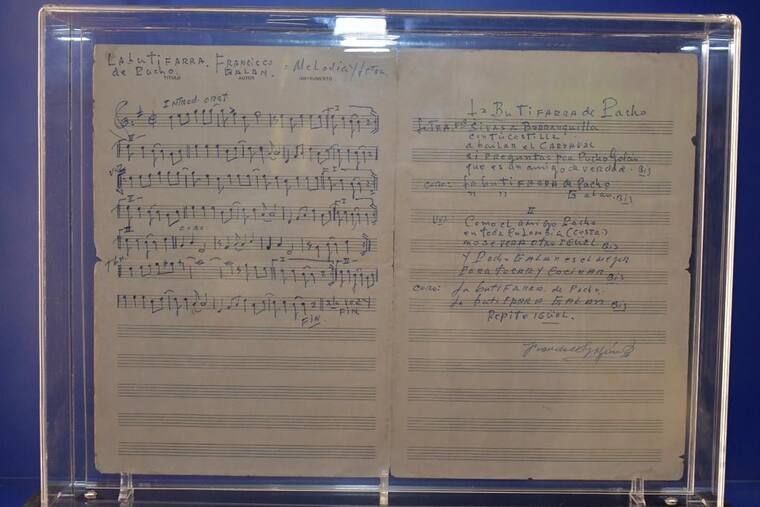 La butifarra. Francisco
de Pacho. Galan. = Melodia y letra
TITULO AUTOR INSTRUMENTO
Introd. orqt
I
II
coro
I II
FIN
FIN
La Butifarra de Pacho
Letra Si vas a Barranquilla
a bailar el Carnaval
si preguntas por Pacho Galán
que es un amigo de verdad. Bis
coro: La butifarra de Pacho
" " Galan. Bis
II
Como el amigo Pacho
en toda Colombia (costa)
no se verá otro igual Bis
Y Pacho Galan es el mejor
para tocar y cocinar Bis
coro: La butifarra de Pacho.
La butifarra Galan Bis
Repite igual.